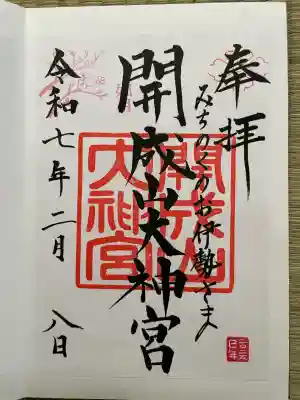 奉拝
みちのくのお伊勢さま
開成山大神宮
開成山
大神宮
令和七年二月八日
二〇二五
巳年